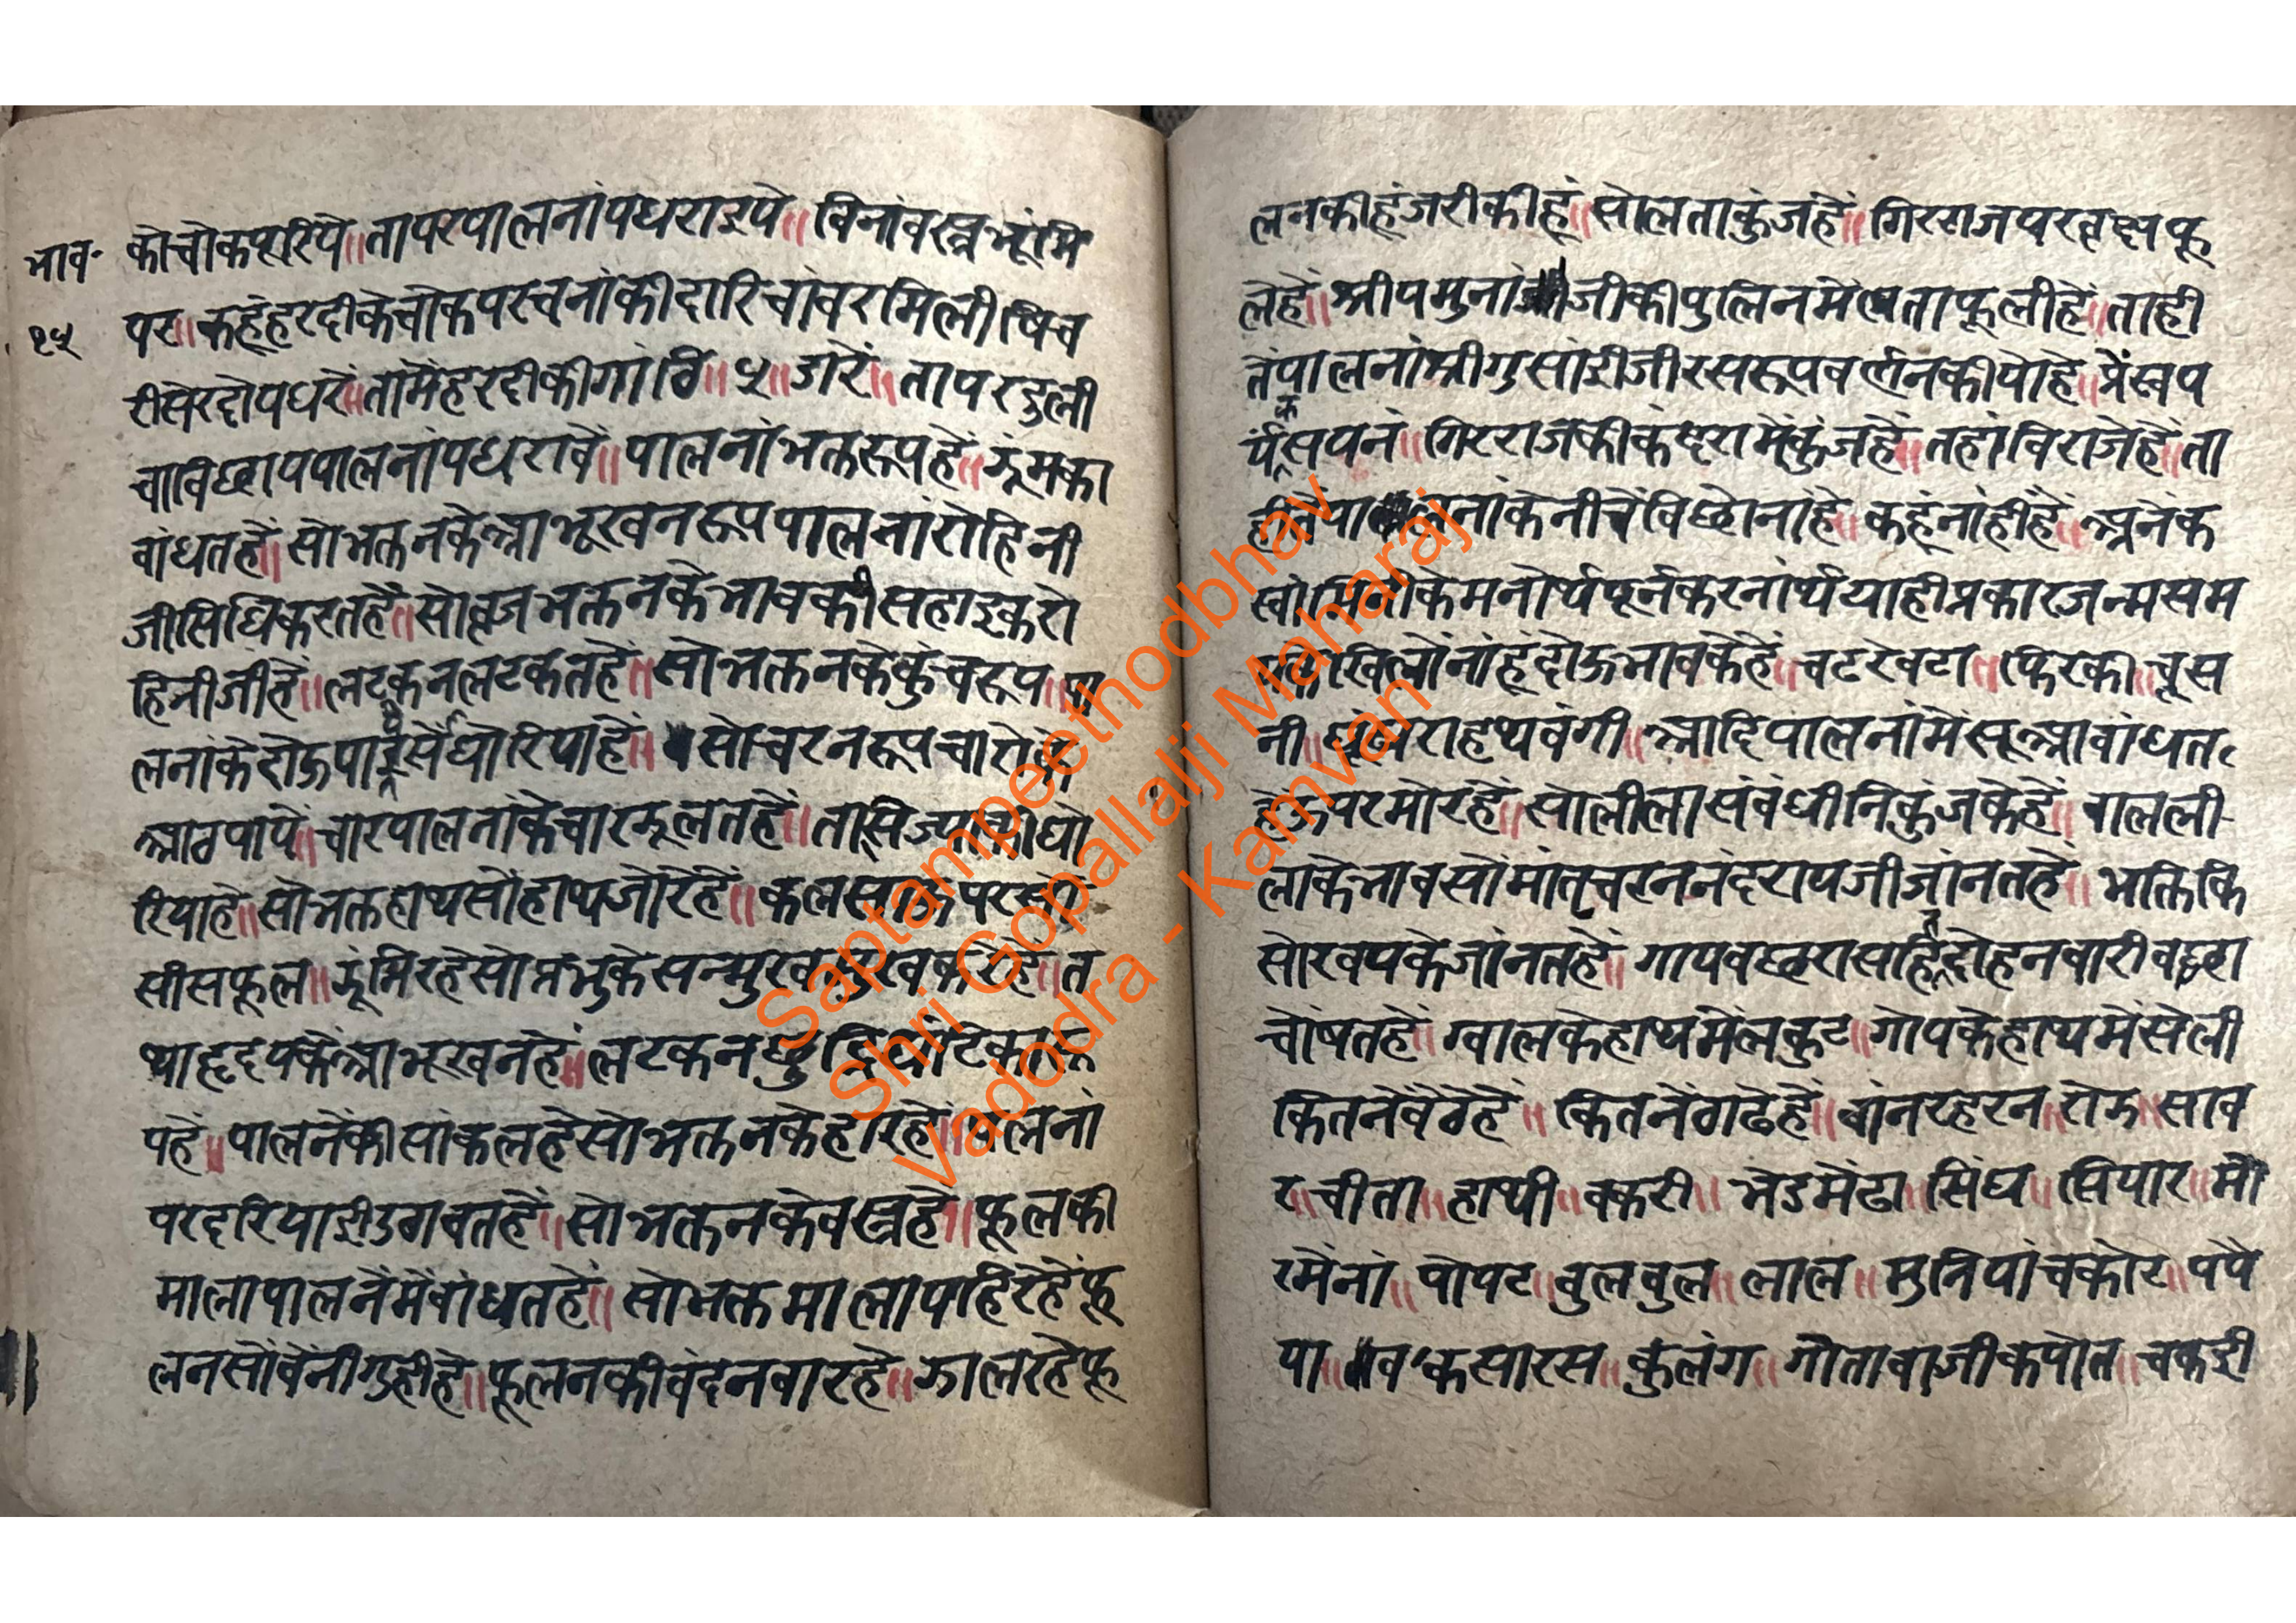 भाव॰
१५
कोचोकपूरिये॥तापरपालनांपधराइये॥विनांवस्त्रभूंमि
पर॥कहूंहरदीकेचोकपरचनांकीदारिचांवरमिलीषिच
रीसेरदोयधरें॥तामेंहरदीकीगांठि॥५॥डारें॥तापरडुली
चाविछायपालनांपधरावें॥पालनांभक्तरूपहें॥झूंमका
वांधतहें॥सोभक्तनकेआभूखनरूपपालनांरोहिनी
जीसिधिकरतहें॥सोव्रजभक्तनकेभावकीसहाइकरो
हिनीजीहें॥लटकनलटकतहें॥सोभक्तनकेकुंचरूप॥पा
लनांकेदोऊ घोरियाहें॥सोचरनरूपचारोहें
आठपाये॥चारपालनांकेचारझूलतहें॥ता
रियाहे॥सोभक्तहाथसोंहाथजोरेहें॥कलसताकेपर
सीसफूल॥झूंमिरहेसोप्रभुकेसन्मुखमुखकरेहें॥त
थाहृदयकेंआभूखनहें॥लटकन
पहें॥पालनेंकीसांकलहेसोभक्तनकेहारहें॥पालनां
परदरियाईडगवतहें॥सोभक्तनकेवस्त्रहें॥फूलकी
मालापालनेंमेंवांधतहें॥सोभक्तमालापहिरेंहेंफू
लनसोंवेंनीगुहीहे॥फूलनकीवंदनवारहे॥झालरहेफू
लनकीहूंजरीकीहूं॥सोलताकुंजहें॥गिरराजपरवृछफू
लेहें॥श्रीयमुनांजीकीपुलिनमेंलताफूलीहें॥ताही
तेंपालनांश्रीगुसांईजीरसरूपवर्ननकीयोहे॥प्रेंखप
र्यंकसयनं॥गिरराजकीकंदरामेंकुंजहें॥तहांविराजेहें॥ता
हीतेंपालनांकेनीचेंविछोनाहें॥कहूंनांहींहें॥अनेक
स्वांमिनीकेमनोर्थपूर्नकरनार्थयाहीप्रकारजन्मसम
एकेखिलोंनांहूंदोऊभावकेहें॥चटखटा॥फिरकी॥चूस
नी॥घूंघराहथवंगी॥आदिपालनांमेंसूआवांधत
हेऊपरमोरहें॥सोलीलासंवंधीनिकुंजकेहें॥वालली
लाकेभावसोंमांतृचरननंदरायजीजांनतहें॥भक्तिकि
सोरवयकेजांनतहें॥गायवछरासहितदोहनवारीवछरा
चोंषतहें॥ग्वालकेहाथमेंलकुट॥गोपकेहाथमेंसेली
कितनेंवैठेहें॥कितनेंठाढेहें॥वांनरहेरन॥रोझ॥साव
र॥चीता॥हाथी॥वकरी॥भेडमेंढा॥सिंघ॥सियार॥मो
रमेंनां॥पोपट॥वुलवुल॥लाल॥मुनियांचकोर॥पपै
या॥वकसारस॥कुलंग॥गोतावाजीकपोत॥चकई
Saptampeethodbhav
Shri Gopallalji Maharaj
Vadodra - Kamvan